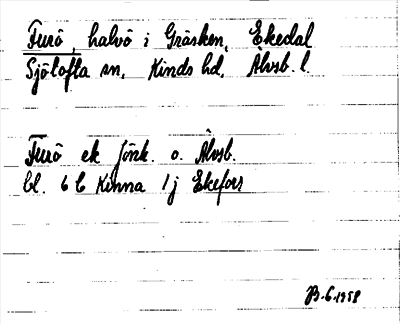 Furö, halvö i Gråsken, Ekedal
Sjötofta sn, Kinds hd, Älvsb. l.
Furö ek Jönk. o. Älvsb.
bl. 6 C Kinna 1 j Ekefors
B. 6. 1958